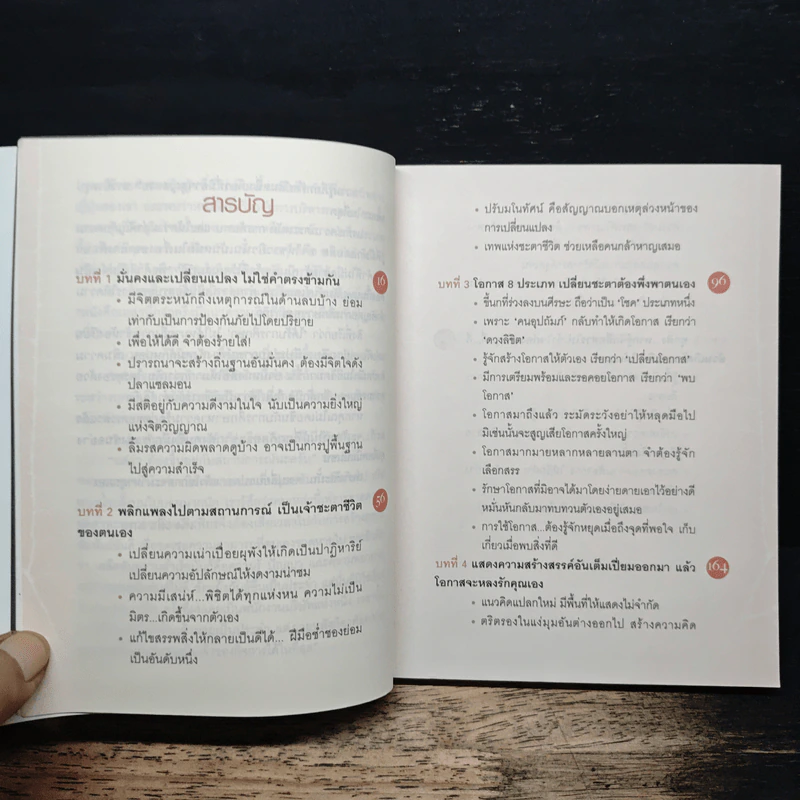 สารบัญ
บทที่ 1 มั่นคงและเปลี่ยนแปลง ไม่ใช่คำตรงข้ามกัน 16
• มีจิตตระหนักถึงเหตุการณ์ในด้านลบบ้าง ย่อม
เท่ากับเป็นการป้องกันภัยไปโดยปริยาย
• เพื่อให้ได้ดี จำต้องร้ายใส่!
• ปรารถนาจะสร้างถิ่นฐานอันมั่นคง ต้องมีจิตใจดัง
ปลาแซลมอน
• มีสติอยู่กับความดีงามในใจ นับเป็นความยิ่งใหญ่
แห่งจิตวิญญาณ
• ลิ้มรสความผิดพลาดดูบ้าง อาจเป็นการปูพื้นฐาน
ไปสู่ความสำเร็จ
บทที่ 2 พลิกแพลงไปตามสถานการณ์ เป็นเจ้าชะตาชีวิต 56
ของตนเอง
• เปลี่ยนความเน่าเปื่อยผุพังให้เกิดเป็นปาฏิหาริย์
เปลี่ยนความอัปลักษณ์ให้งดงามน่าชม
• ความมีเสน่ห์...พิชิตได้ทุกแห่งหน ความไม่เป็น
มิตร...เกิดขึ้นจากตัวเอง
• แก้ไขสรรพสิ่งให้กลายเป็นดีได้... ฝีมือซ้ำของย่อม
เป็นอันดับหนึ่ง
• ปรับมโนทัศน์ คือสัญญาณบอกเหตุล่วงหน้าของ
การเปลี่ยนแปลง
• เทพแห่งชะตาชีวิต ช่วยเหลือคนกล้าหาญเสมอ
บทที่ 3 โอกาส 8 ประเภท เปลี่ยนชะตาต้องพึ่งพาตนเอง 96
• ขี้นกที่ร่วงลงบนศีรษะ ถือว่าเป็น ‘โชค’ ประเภทหนึ่ง
• เพราะ ‘คนอุปถัมภ์’ กลับทำให้เกิดโอกาส เรียกว่า
‘ดวงลิขิต’
• รู้จักสร้างโอกาสให้ตัวเอง เรียกว่า ‘เปลี่ยนโอกาส’
• มีการเตรียมพร้อมและรอคอยโอกาส เรียกว่า ‘พบ
โอกาส’
• โอกาสมาถึงแล้ว ระมัดระวังอย่าให้หลุดมือไป
มิเช่นนั้นจะสูญเสียโอกาสครั้งใหญ่
• โอกาสมากมายหลากหลายลานตา จำต้องรู้จัก
เลือกสรร
• รักษาโอกาสที่มิอาจได้มาโดยง่ายดายเอาไว้อย่างดี
หมั่นหันกลับมาทบทวนตัวเองอยู่เสมอ
• การใช้โอกาส...ต้องรู้จักหยุดเมื่อถึงจุดที่พอใจ เก็บ
เกี่ยวเมื่อพบสิ่งที่ดี
บทที่ 4 แสดงความสร้างสรรค์อันเต็มเปี่ยมออกมา แล้ว 164
โอกาสจะหลงรักคุณเอง
• แนวคิดแปลกใหม่ มีพื้นที่ให้แสดงไม่จำกัด
• ตริตรองในแง่มุมอันต่างออกไป สร้างความคิด